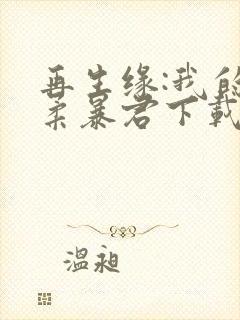 再生缘:我的
柔暴君下载
溫昶